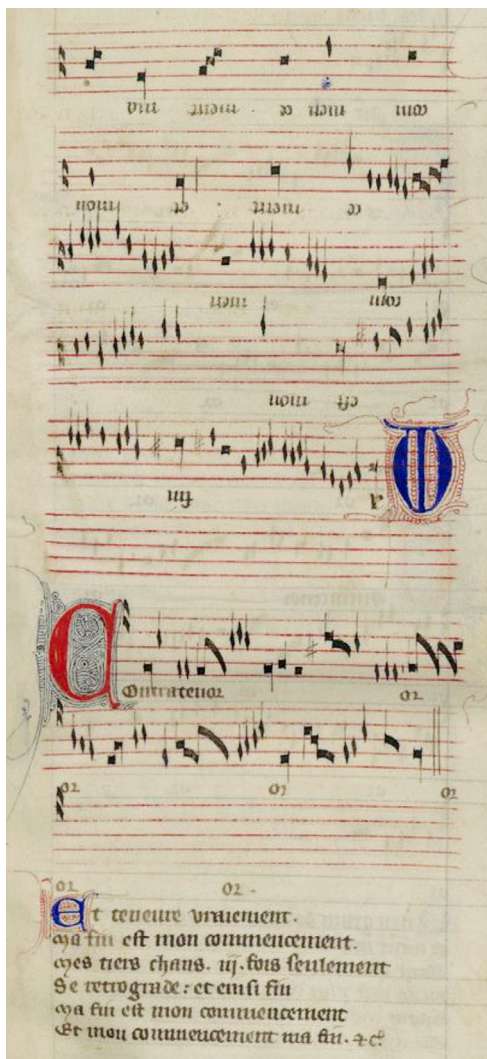 Ma fin
est mon
com men
ce ment . et mon
com men ce . ment ma
Contratenor or
or or or
or or .
Et teneure vraiement.
Ma fin est mon commencement.
Mes tiers chans .iij. fois seulement
Se retrograde : et einsi fin
Ma fin est mon commencement
Et mon commencement ma fin. &c.